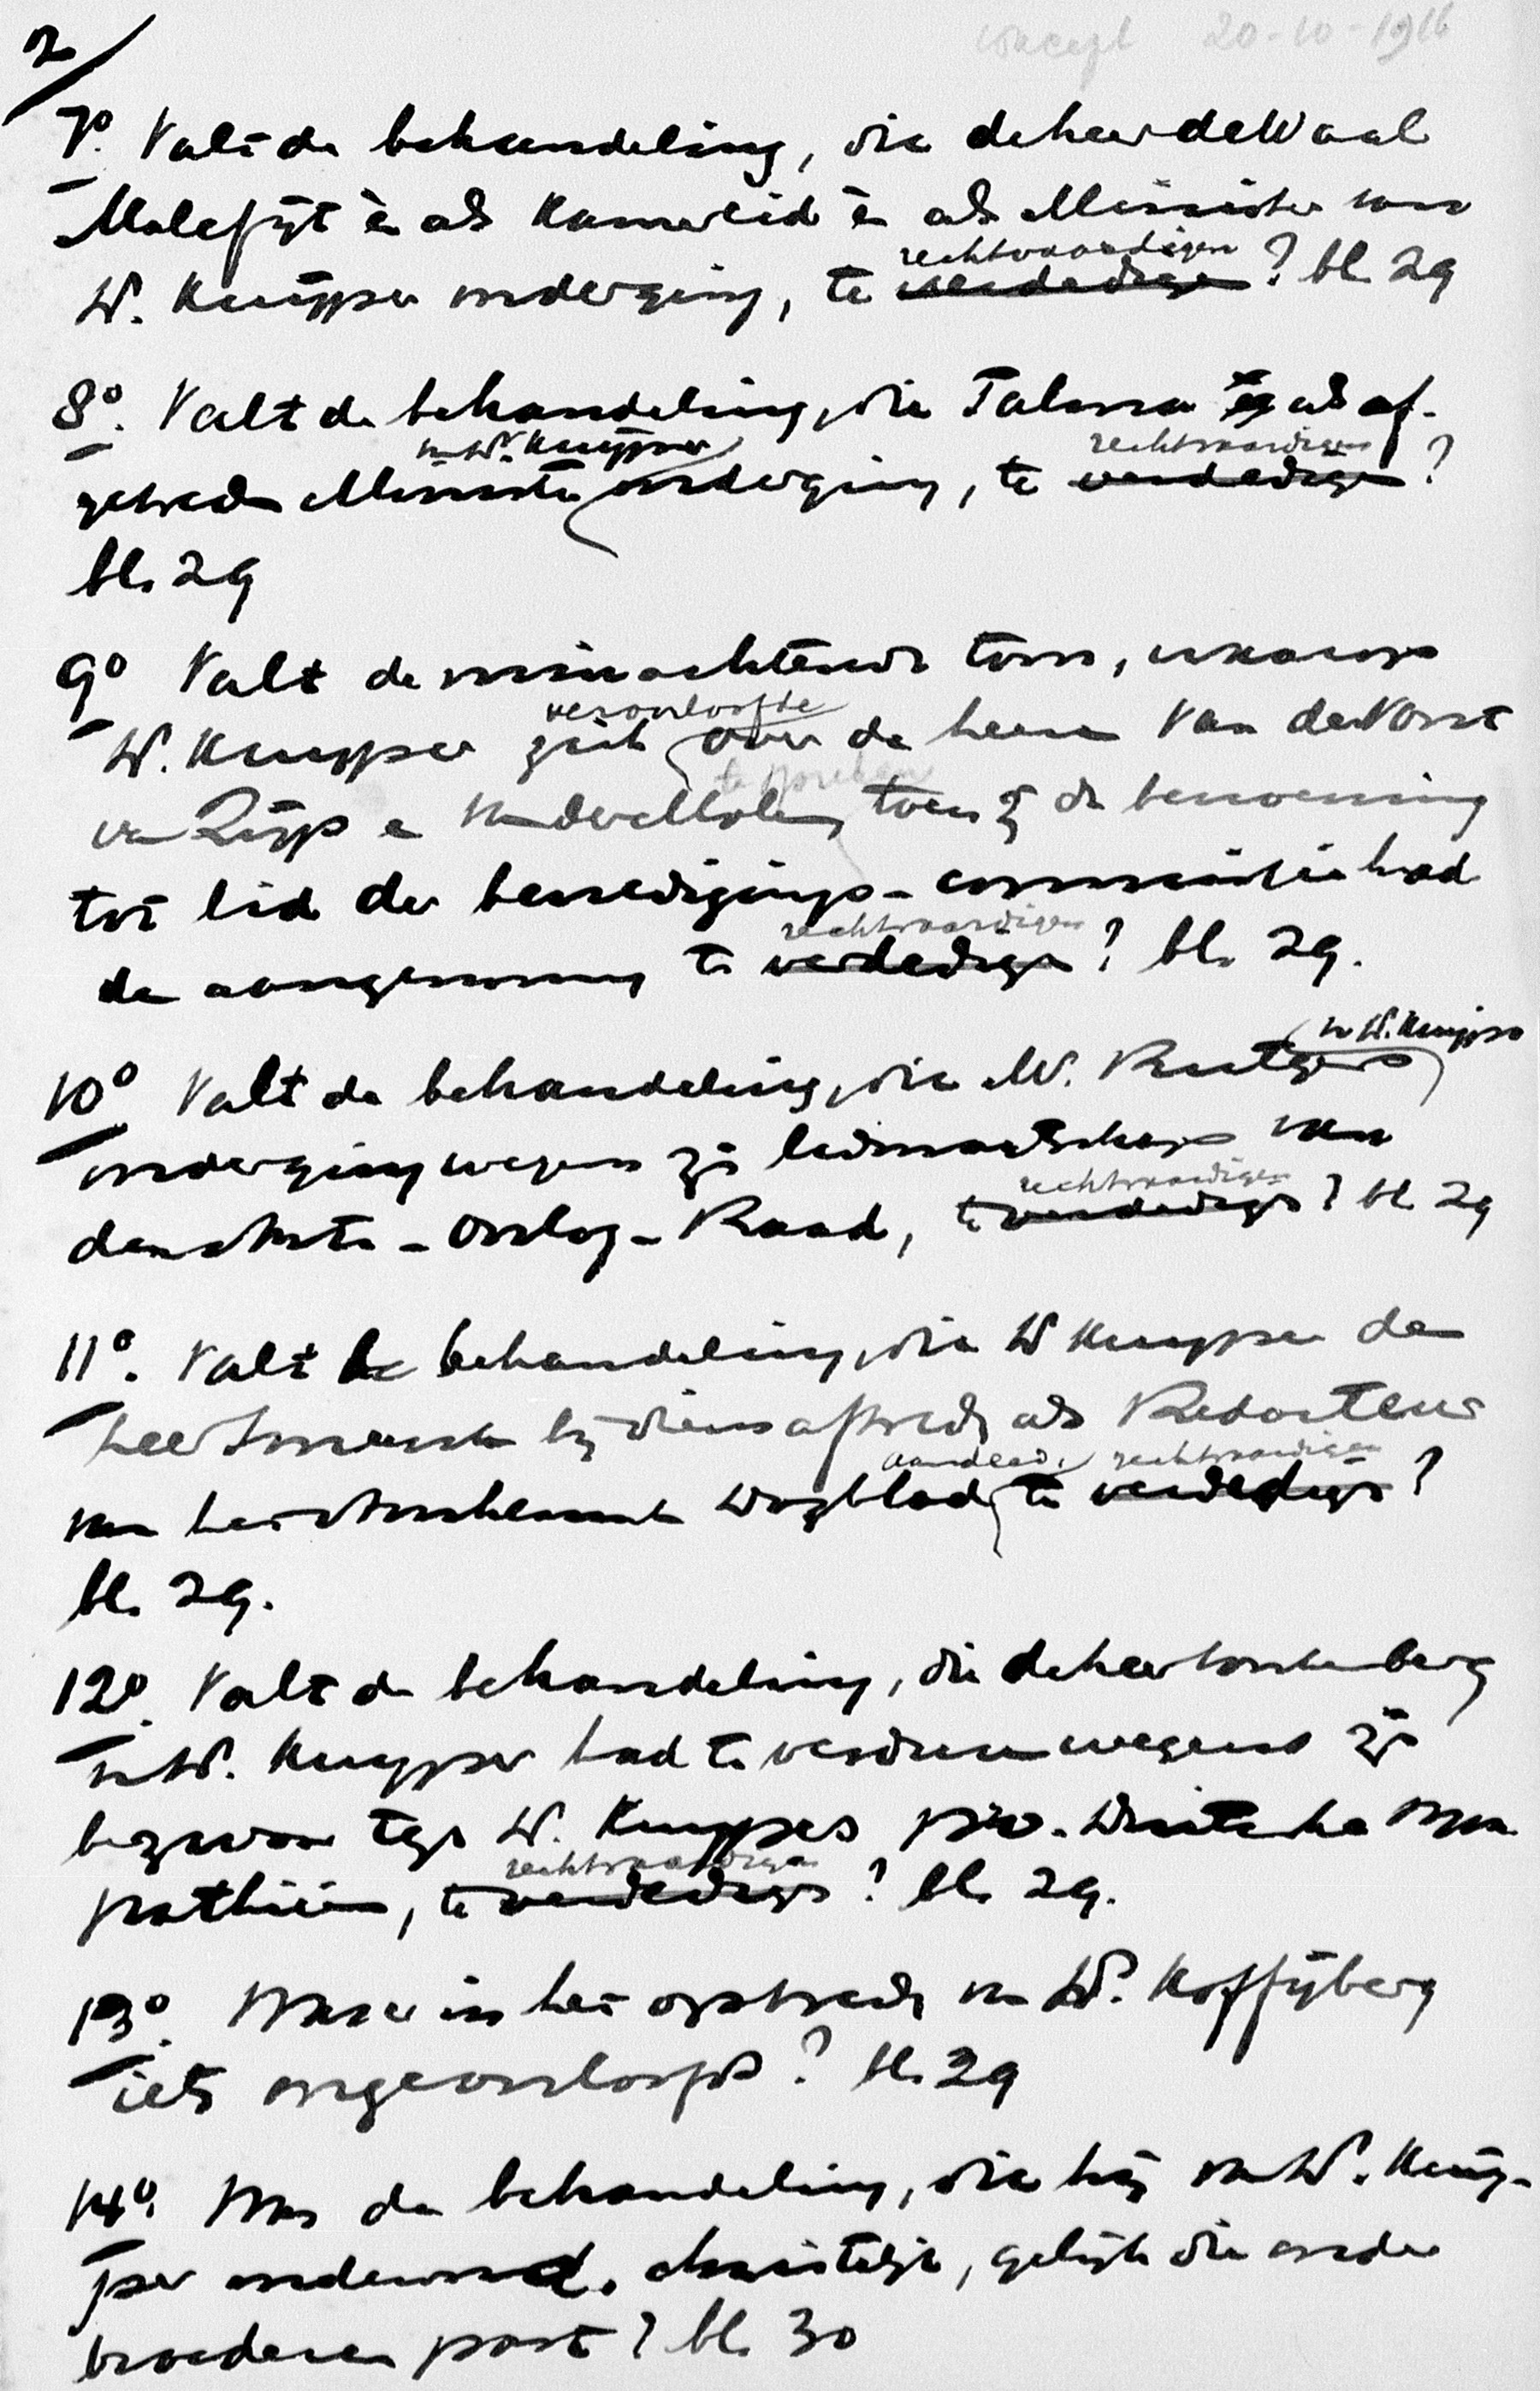 concept 20-10-1916
2/
7º. Valt de behandeling, die de heer de Waal
Malefijt èn als Kamerlid èn als Minister van
rechtvaardigen
Dr. Kuijper onderging, te verdedigen? bl. 29
8º. Valt de behandeling, die Talma als af-
van Dr. Kuijper rechtvaardigen
getreden Minister onderging, te verdedigen?
bl. 29
9º Valt de minachtende toon, waarop
veroorloofde
Dr. Kuyper zich over de heeren Van der Vorst
te spreken
van Zijp en toen zij de benoeming
tot lid der bevredigings-commissie hadden
rechtvaardigen
aangenomen te verdedigen? bl. 29.
van Dr. Kuijper
10º Valt de behandeling, die Mr. Rutgers
onderging wegens zijn lidmaatschap van
rechtvaardigen
den Anti-Oorlog-Raad, te verdedigen? bl 29
11º. Valt de behandeling, die Dr Kuyper den
heer bij diens aftreden als Redacteur
aandeed, rechtvaardigen
van het Weekblad te verdedigen?
bl. 29.
12º. Valt de behandeling, die de heer
van Dr. Kuyper had te verduren wegens zijn
bezwaren tegen Dr. Kuyper's pro-Duitsche sym-
rechtvaardigen
pathieën, te verdedigen? bl. 29.
13º. Was er in het optreden van Dr. Koffijberg
iets ongeoorloofds? bl. 29
14º. Was de behandeling, die hij van Dr. Kuij-
per ondervond, christelijk, gelijk die onder
broederen past? bl. 30